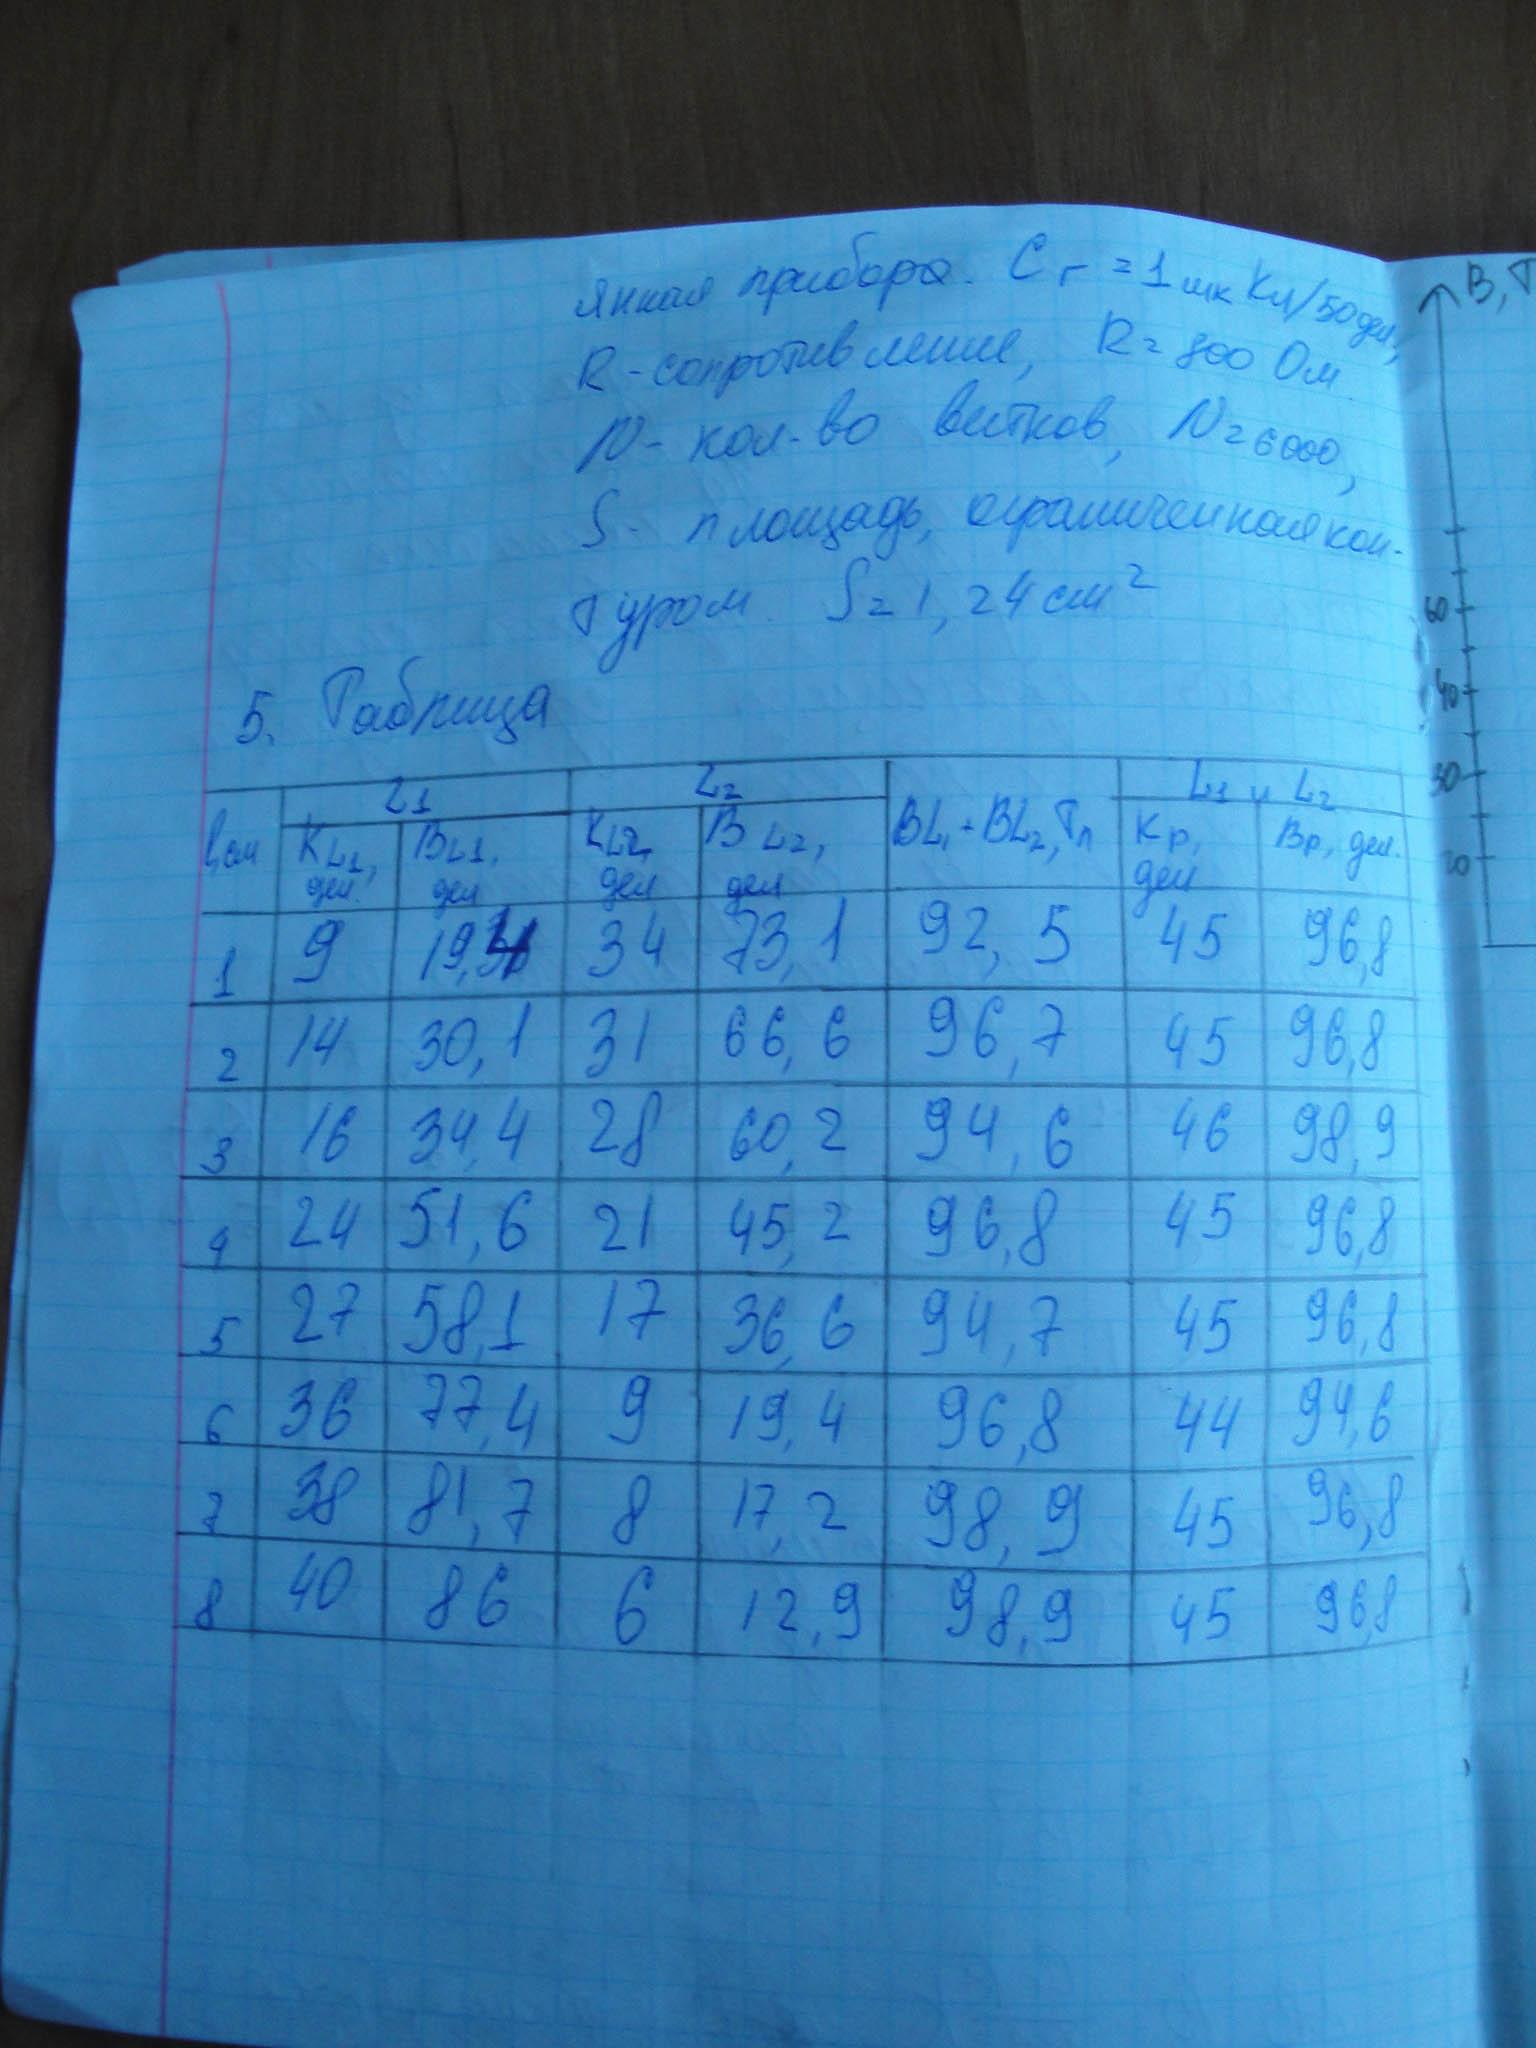 янная прибора. Cг = 1 мкКл/50дел,
R - сопротивление, R = 800 Ом
N - кол-во витков, N = 6000,
S - площадь, ограниченная кон-
туром. S = 1,24 см²
5. Таблица
L1 L2 BL1 + BL2, Тл L1 и L2
l, см KL1, дел. BL1, дел KL2, дел BL2, дел Kр, дел Bр, дел.
1 9 19,4 34 73,1 92,5 45 96,8
2 14 30,1 31 66,6 96,7 45 96,8
3 16 34,4 28 60,2 94,6 46 98,9
4 24 51,6 21 45,2 96,8 45 96,8
5 27 58,1 17 36,6 94,7 45 96,8
6 36 77,4 9 19,4 96,8 44 94,6
7 38 81,7 8 17,2 98,9 45 96,8
8 40 86 6 12,9 98,9 45 96,8
B, Т
60
40